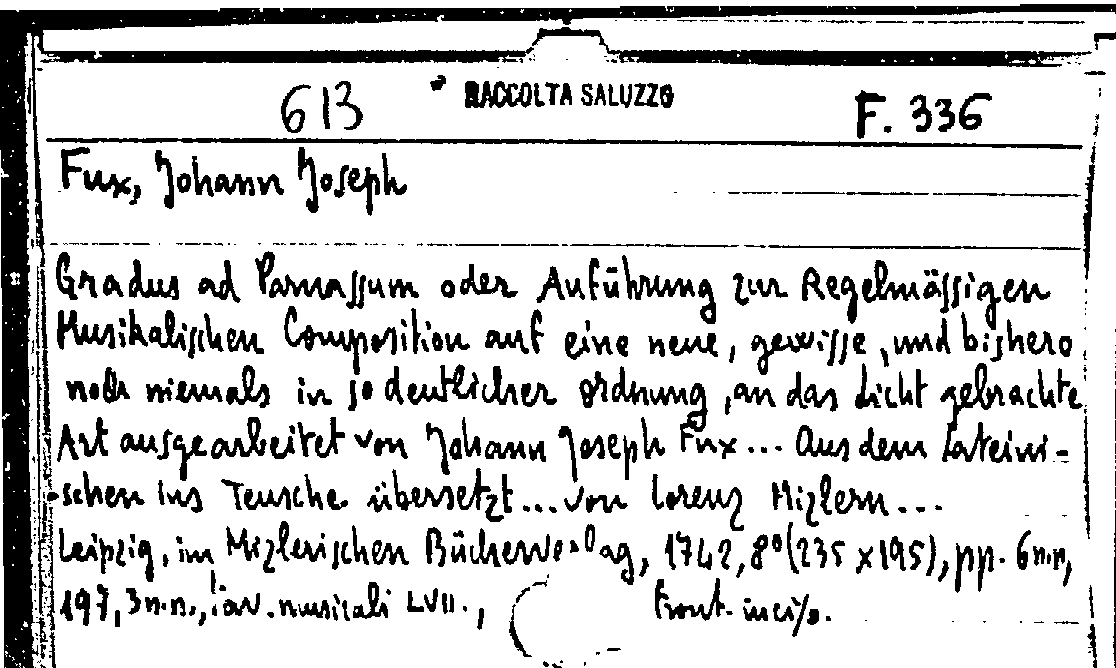 613 RACCOLTA SALUZZO F. 336
Fux, Johann Joseph
Gradus ad Parnassum oder Anführung zur Regelmässigen
Musikalischen Composition auf eine neue, gewisse, und bishero
noch niemals in so deutlicher ordnung, an das Licht gebrachte
Art ausgearbeitet von Johann Joseph Fux... Aus dem Lateini-
-schen ins Teusche übersetzt... von Lorenz Mizlern...
Leipzig, im Mizlerischen Bücherverlag, 1742, 8º (235 x 195), pp. 6 n.n,
197, 3 n.n., tav. musicali LVII., front. incis.